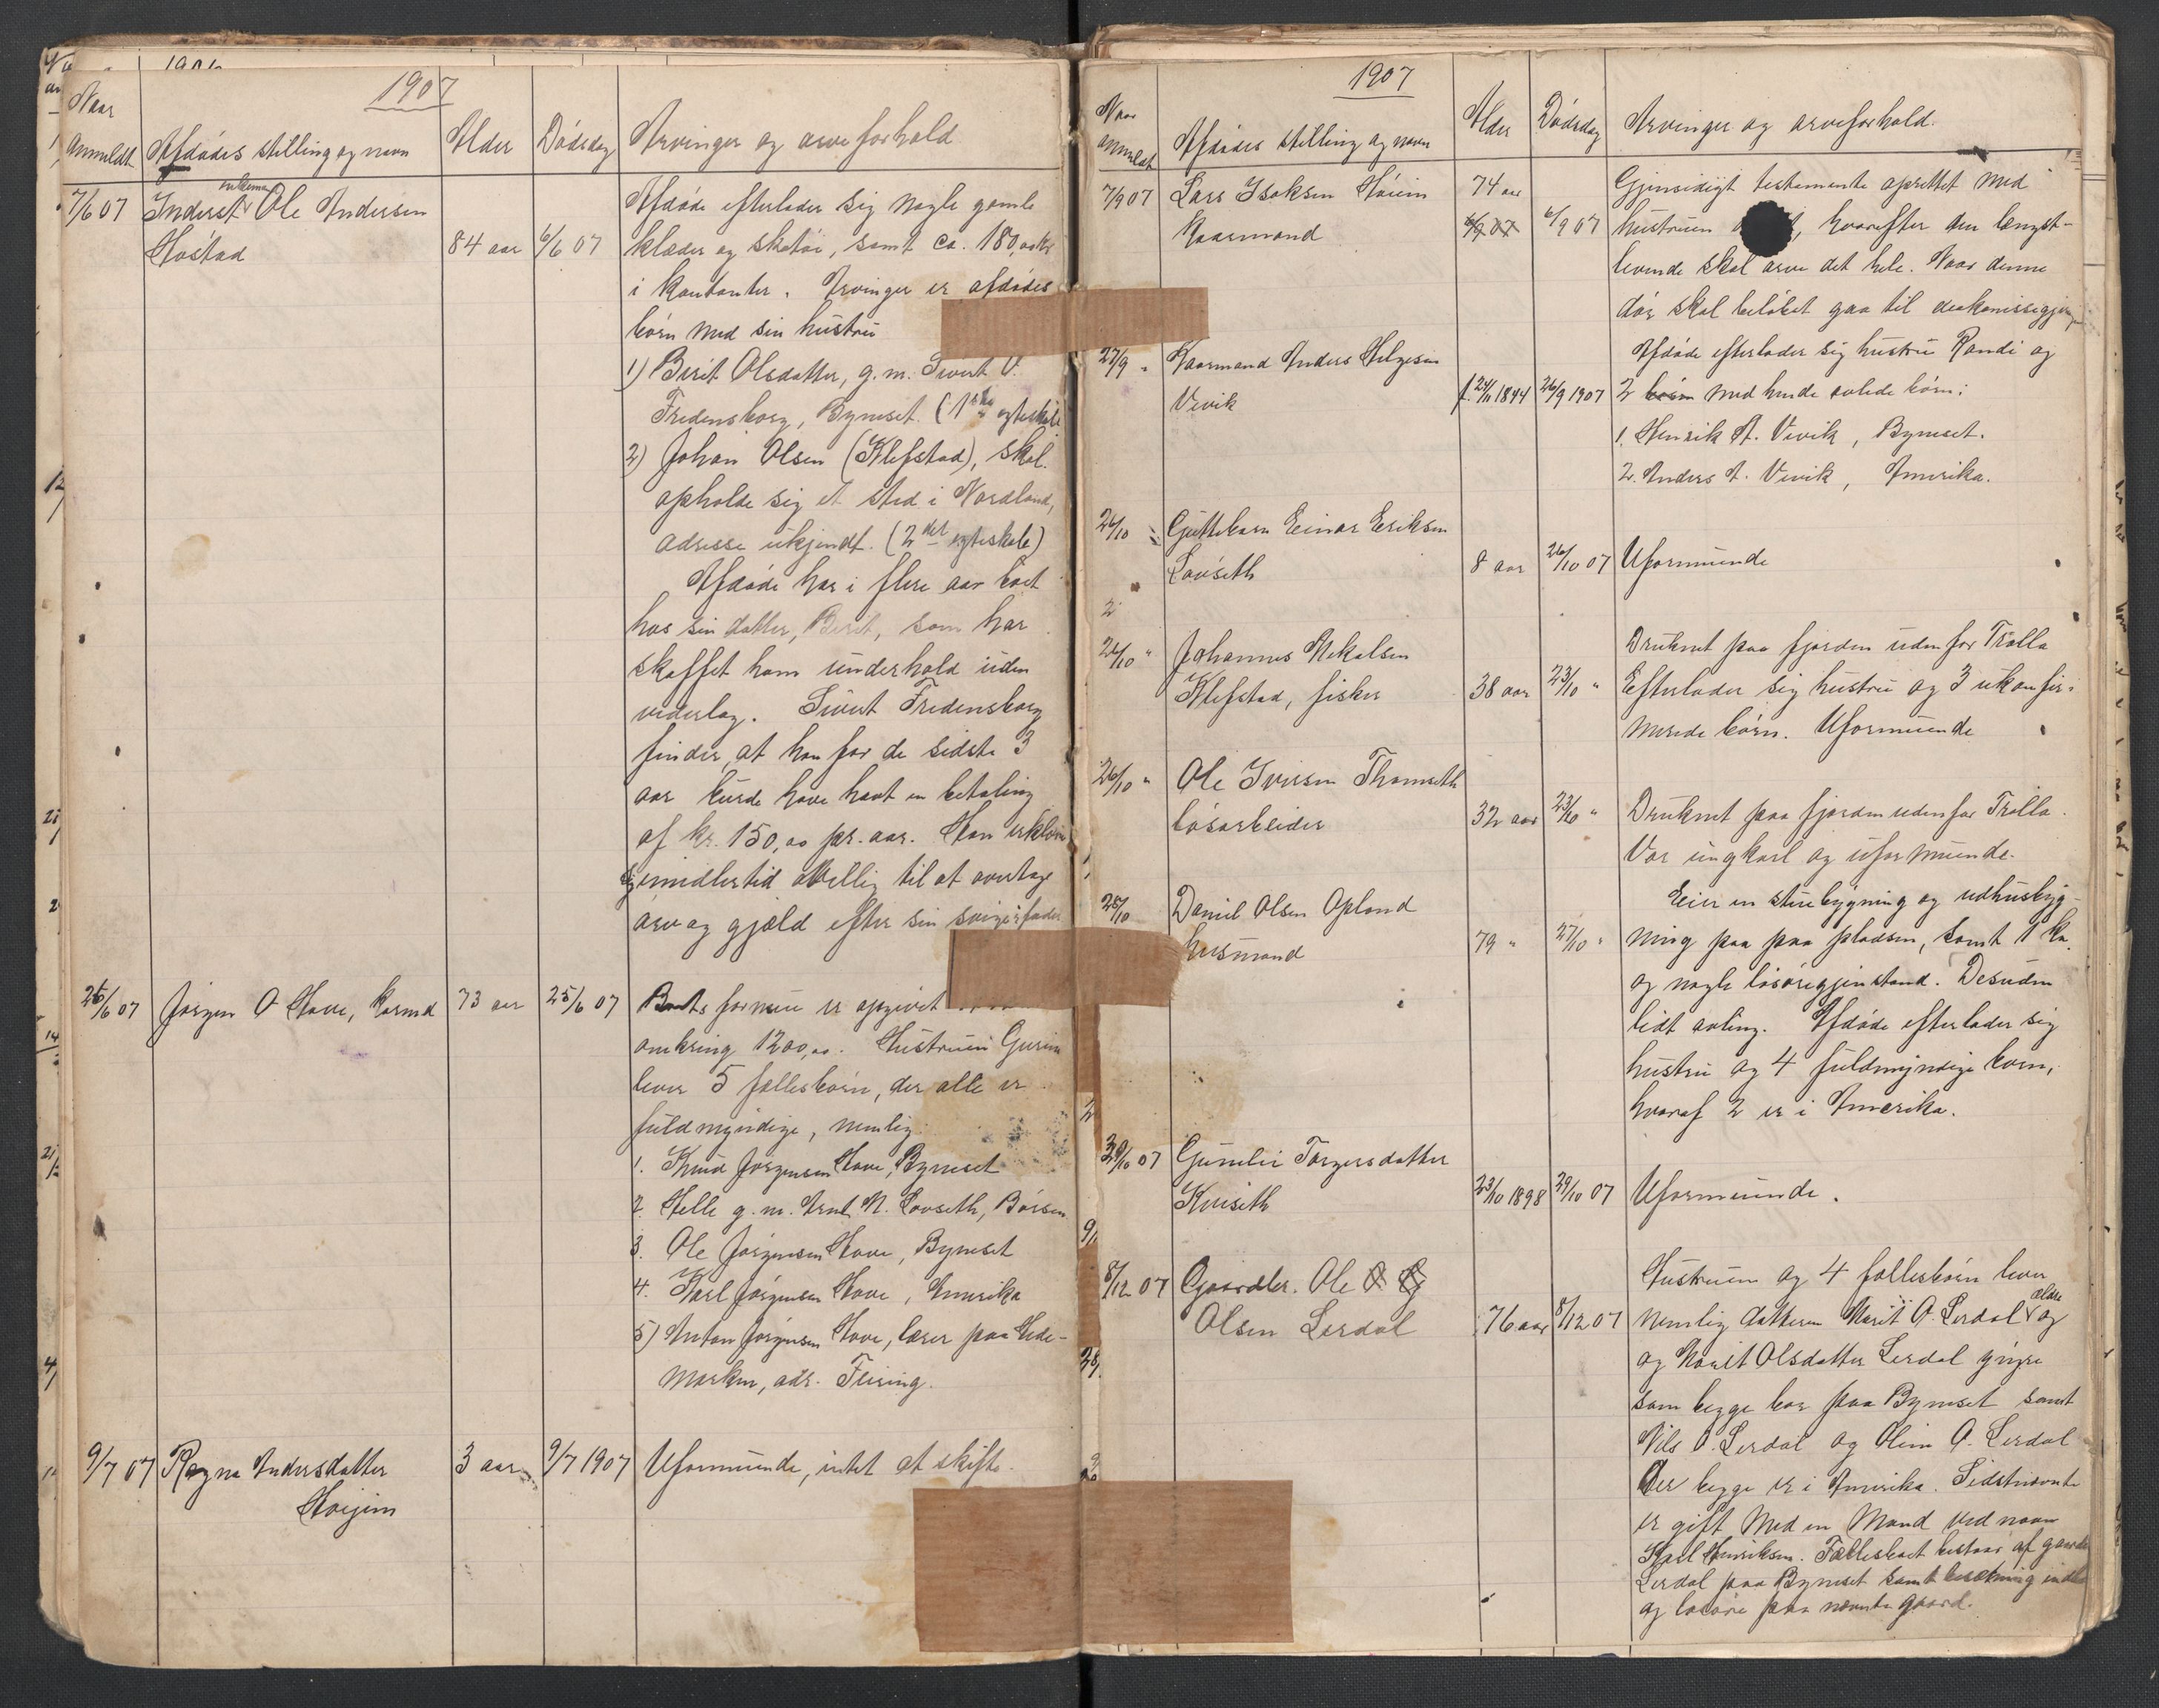 1906
1907
Naar
anmeldt. Afdødes stilling og navn Alder Dødsdag Arvinger og arveforhold
7/6 07 Inderst enkem. Ole Andersen
Høstad 84 aar 6/6 07
Afdøde efterlader sig nogle gamle
klæder og skotøi, samt ca. 180,00 kr
i kontanter. Arvinger er afdødes
børn med sin hustru
1) Berit Olsdatter, g.m. Sivert O.
Fredensborg, Bynæset. (1ste egteskab)
2) Johan Olsen (Klefstad), skal
opholde sig et sted i Nordland,
adresse ukjendt. (2det egteskab)
Afdøde har i flere aar boet
hos sin datter, Berit, som har
skaffet ham underhold uden
vederlag. Sivert Fredensborg
finder, at han for de sidste 3
aar burde have havt en betaling
af kr. 150,00 pr. aar. Han erklærer
sig imidlertid villig til at overtage
arv og gjæld efter sin svigerfader
26/6 07 Jørgen O Hove, kaarmd 73 aar 25/6 07 Boets formue er opgivet
omkring 1200,00. Hustruen Guruna
lever 5 fællesbørn, der alle er
fuldmyndige, nemlig:
1. Knud Jørgensen Hove, Bynæset
2. Helle g.m. Arnt N. Lovseth, Børsen
3. Ole Jørgensen Hove, Bynæset
4. Karl Jørgensen Hove, Amerika
5) Anton Jørgensen Hove, lærer paa Hede-
marken, adr. Feiring.
9/7 07 Ragna Andersdatter 3 aar 9/7 1907 Uformuende, intet at skifte.
Høijem
1907
Naar
anmeldt Afdødes stilling og navn Alder Dødsdag Arvinger og arveforhold.
7/9 07 Lars Isaksen Høiem 74 aar
Kaarmand 6/9 07 6/9 07
Gjensidigt testamente oprettet med
hustruen, hvorefter den længst-
levende skal arve det hele. Naar denne
dør skal beløbet gaa til diakonissegjerningen
27/9 " Kaarmand Anders Helgesen
Vevik f. 24/11 1844 26/9 1907
Afdøde efterlader sig hustru Randi og
2 børn med hende avlede børn:
1. Henrik A. Vevik, Bynæset.
2. Anders A. Vevik, Amerika.
26/10 " Guttebarn Einar Eriksen
Lovseth 8 aar 26/10 07 Uformuende
26/10 " Johannes Mekalsen
Klefstad, fisker 38 aar 23/10 "
Druknet paa fjorden udenfor Trolla
Efterlader sig hustru og 3 ukonfir-
merede børn. Uformuende
26/10 " Ole Iversen Thomseth
løsarbeider 32 aar 23/10 " Druknet paa fjorden udenfor Trolla.
Var ungkarl og uformuende.
28/10 Daniel Olsen Opland
husmand 79 " 27/10 "
Eier en stuebygning og udhusbyg-
ning paa paa pladsen, samt 1 ko
og nogle løsøregjenstand. Desuden
lidt avling. Afdøde efterlader sig
hustru og 4 fuldmyndige børn,
hvoraf 2 er i Amerika.
30/10 07 Gunelie Torgersdatter
Kviseth 23/10 1898 29/10 07 Uformuende.
8/12 07 Gaardbr. Ole
Olsen Lerdal 76 aar 8/12 07
Hustruen og 4 fællesbørn lever
nemlig datteren Marit O. Lerdal ældre og
og Marit Olsdatter Lerdal yngre
som begge bor paa Bynæset samt
Nils O. Lerdal og Oline O. Lerdal
der begge er i Amerika. Sidstnævnte
er gift med en Mand ved navn
Karl Henriksen. Fællesboet bestaar af gaarden
Lerdal paa Bynæset samt besætning indbo
og løsøre paa nævnte gaard.